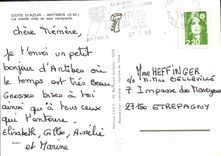 CÔTE D'AZUR - ANTIBES (A.M.)
La vieille ville et ses remparts
Chère Mémère,
Je t'envoi un petit
bonjour d'Antibes où
le temps est très beau
Grosses bises à toi
ainsi qu'à tous ceux
qui t'entoure.
Elisabeth, Gilles, Aurélie
et Marine
2,20
Mme HEFFINGER
7 Impasse du
27150 ETREPAGNY